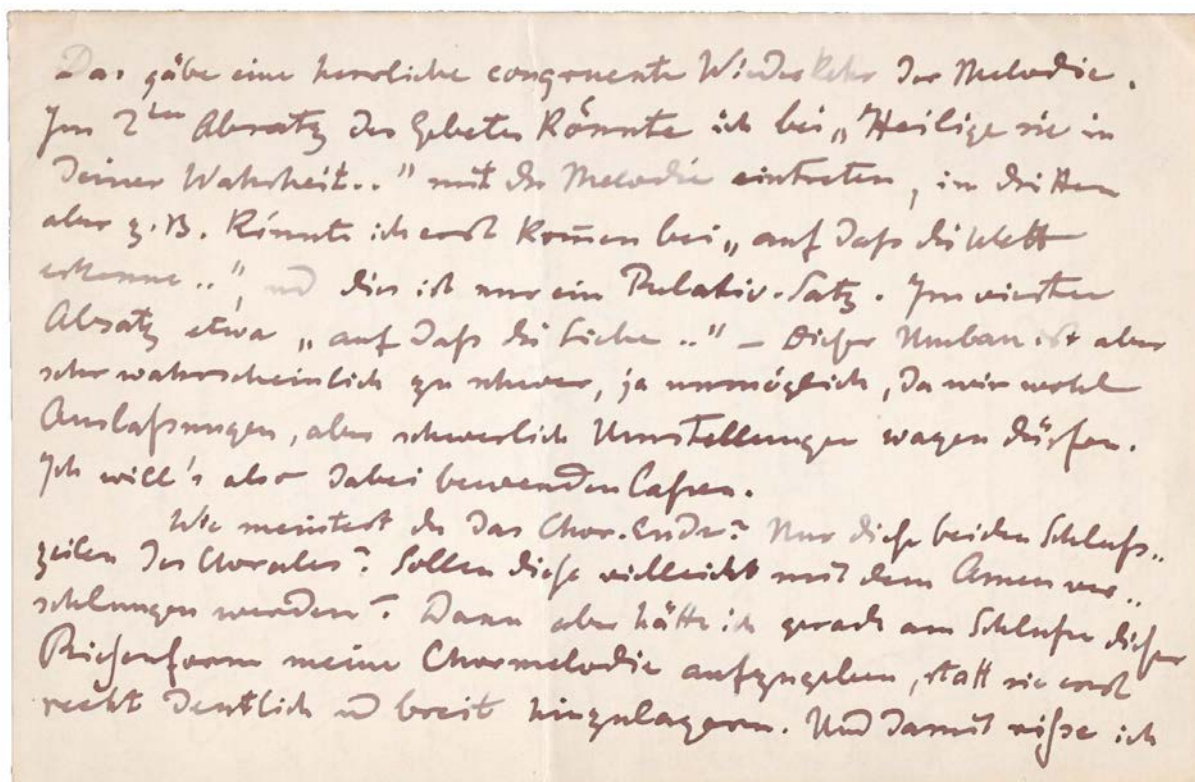 Das gäbe eine herrliche congruente Wiederkehr der Melodie.
Im 2ten Absatz des Gebetes könnte ich bei „Heilige sie in
Deiner Wahrheit.." mit der Melodie eintreten, im dritten
aber z.B. könnte ich erst kom̄en bei „auf daß die Welt
erkenne..", und dies ist nur ein Relativ-Satz. Im vierten
Absatz etwa „auf daß die Liebe.." – Dieser Umbau ist aber
sehr wahrscheinlich zu schwer, ja unmöglich, da wir wohl
Auslaßungen, aber schwerlich Umstellungen wagen dürfen.
Ich will's also dabei bewenden laßen.
Wie meintest du das Chor-Ende? Nur diese beiden Schluß..
zeilen des Chorales? Sollen diese vielleicht mit dem Amen ver..
schlungen werden? Dann aber hätte ich gerade am Schluße dieser
Riesenform meine Chormelodie aufzugeben, statt sie erst
recht deutlich und breit hinzulagern. Und damit riße ich